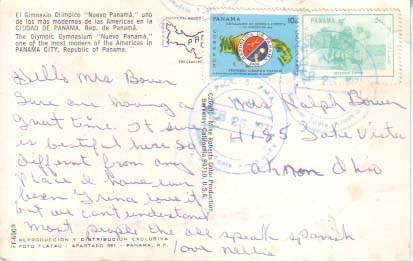 El Gimnasio Olímpico "Nuevo Panamá", uno
de los más modernos de las Américas en la
CIUDAD DE PANAMA, Rep. de Panamá.
The Olympic Gymnasium "Nuevo Panamá",
one of the most modern of the Americas in
PANAMA CITY, Republic of Panama.
PANAMA
10c
PANAMA
Hello Mrs Bower
Sure are having a
great time. It sure
is beutiful here so
different from any
place I have ever
been Irma love it
but we cant understand
most people the all speak spanish
love Nellie
Mrs Ralph Bower
1185 Lake Vista
Akron Ohio
Color by Mike Roberts Color Production,
Berkeley, California 94710, U.S.A.
REPRODUCCION Y DISTRIBUCION EXCLUSIVA
FOTO FLATAU - APARTADO
PANAMA, R.P.